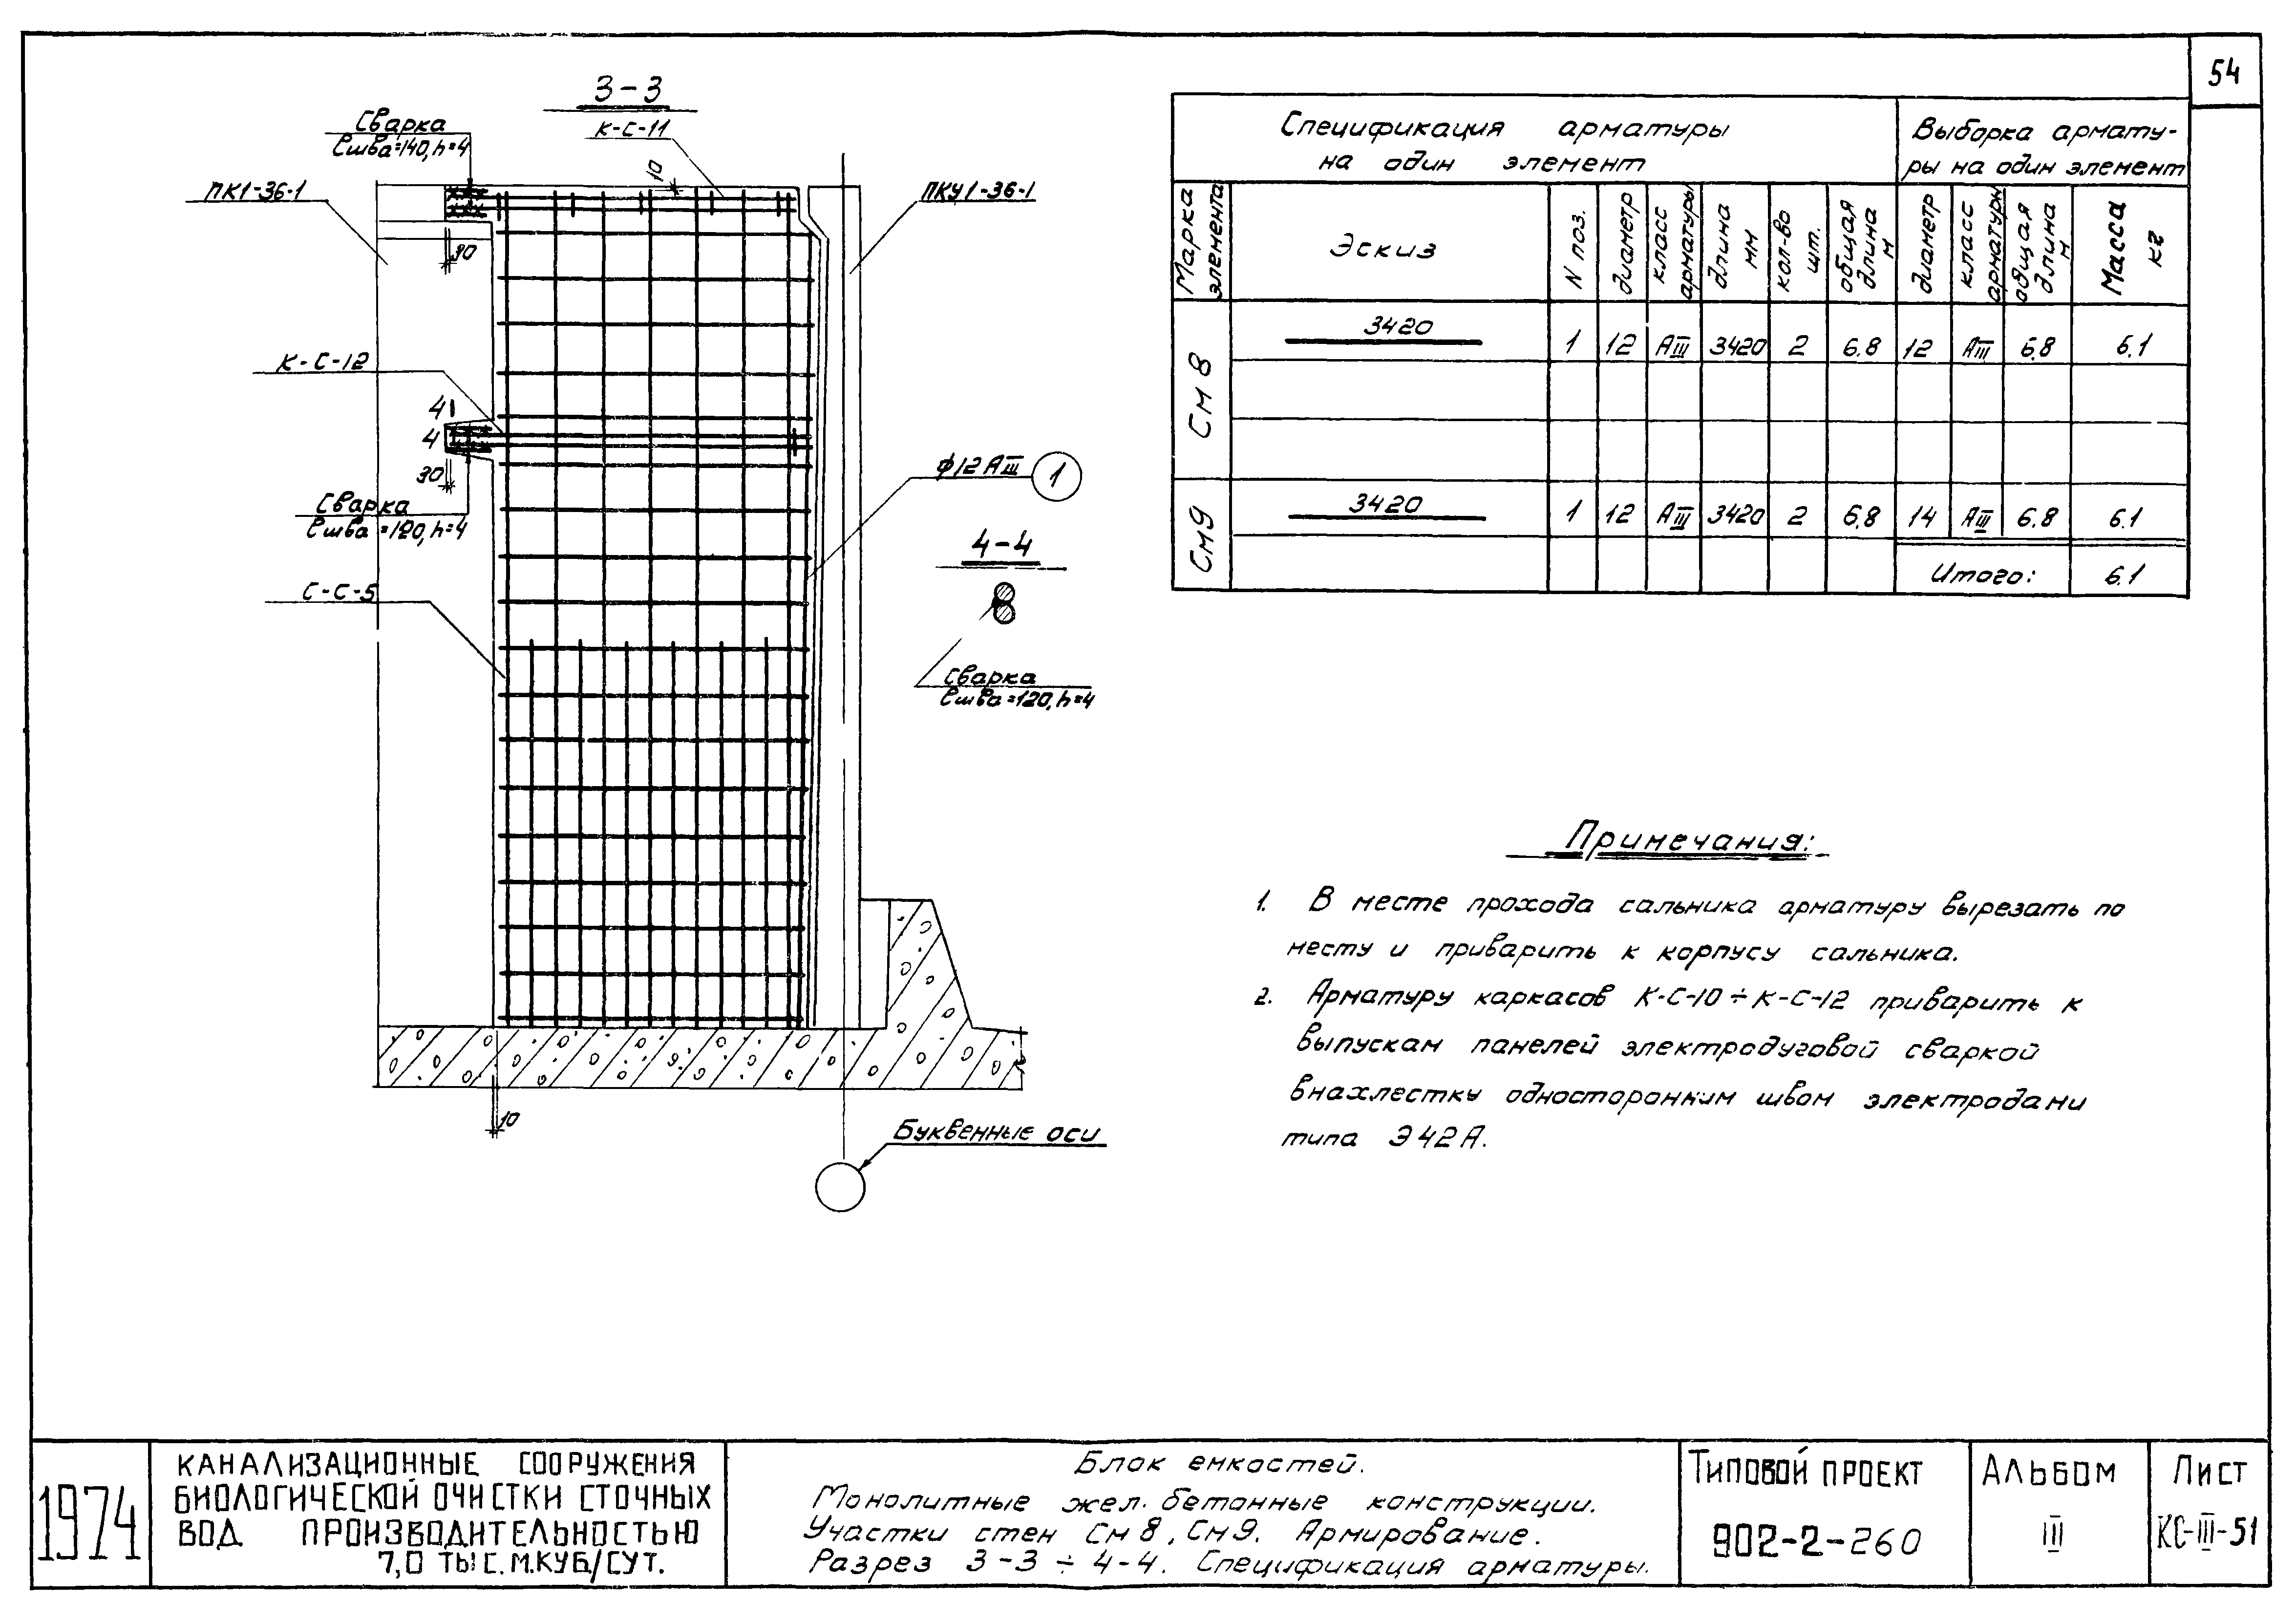 54
3-3
К-С-11
Сварка
ℓшва=140, h=4
10
ПК1-36-1
ПКУ1-36-1
30
К-С-12
4
4
30
Сварка
ℓшва=120, h=4
ф12АIII 1
4-4
С-С-5
Сварка
ℓшва=120, h=4
10
Буквенные оси
Спецификация арматуры
на один элемент
Выборка армату-
ры на один элемент
Марка элемента
Эскиз
N поз.
диаметр
класс арматуры
длина мм
кол-во шт.
общая длина м
диаметр
класс арматуры
общая длина м
Масса кг
См 8 3420 1 12 АIII 3420 2 6.8 12 АIII 6.8 6.1
См9 3420 1 12 АIII 3420 2 6.8 14 АIII 6.8 6.1
Итого: 6.1
Примечания:
1. В месте прохода сальника арматуру вырезать по
месту и приварить к корпусу сальника.
2. Арматуру каркасов К-С-10÷К-С-12 приварить к
выпускам панелей электродуговой сваркой
внахлестку односторонним швом электродами
типа Э42А.
1974
КАНАЛИЗАЦИОННЫЕ СООРУЖЕНИЯ
БИОЛОГИЧЕСКОЙ ОЧИСТКИ СТОЧНЫХ
ВОД ПРОИЗВОДИТЕЛЬНОСТЬЮ
7,0 ТЫС. М.КУБ/СУТ.
Блок емкостей.
Монолитные жел. бетонные конструкции.
Участки стен См 8, См 9. Армирование.
Разрез 3-3 ÷ 4-4. Спецификация арматуры.
ТИПОВОЙ ПРОЕКТ
902-2-260
АЛЬБОМ
III
ЛИСТ
КС-III-51